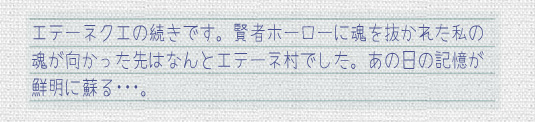 エテーネクエの続きです。賢者ホーローに魂を抜かれた私の
魂が向かった先はなんとエテーネ村でした。あの日の記憶が
鮮明に蘇る・・・。